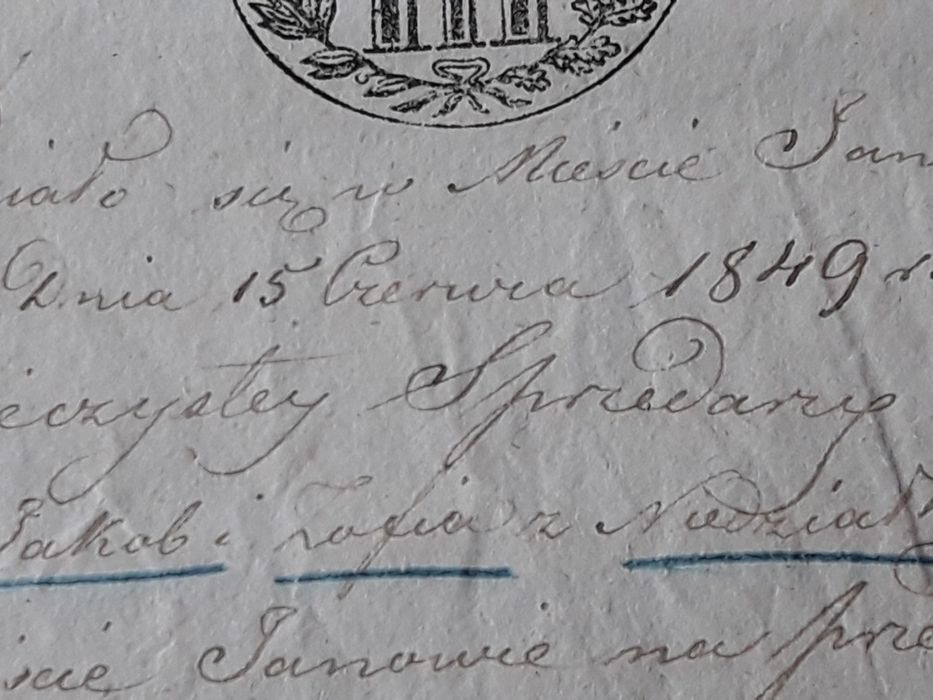 iało się w Miescie Jan
Dnia 15 Czerwca 1849 r.
eczystey Sprzedazy
Jakob i Zofia z Niedziałk
iscie Janowie na prze